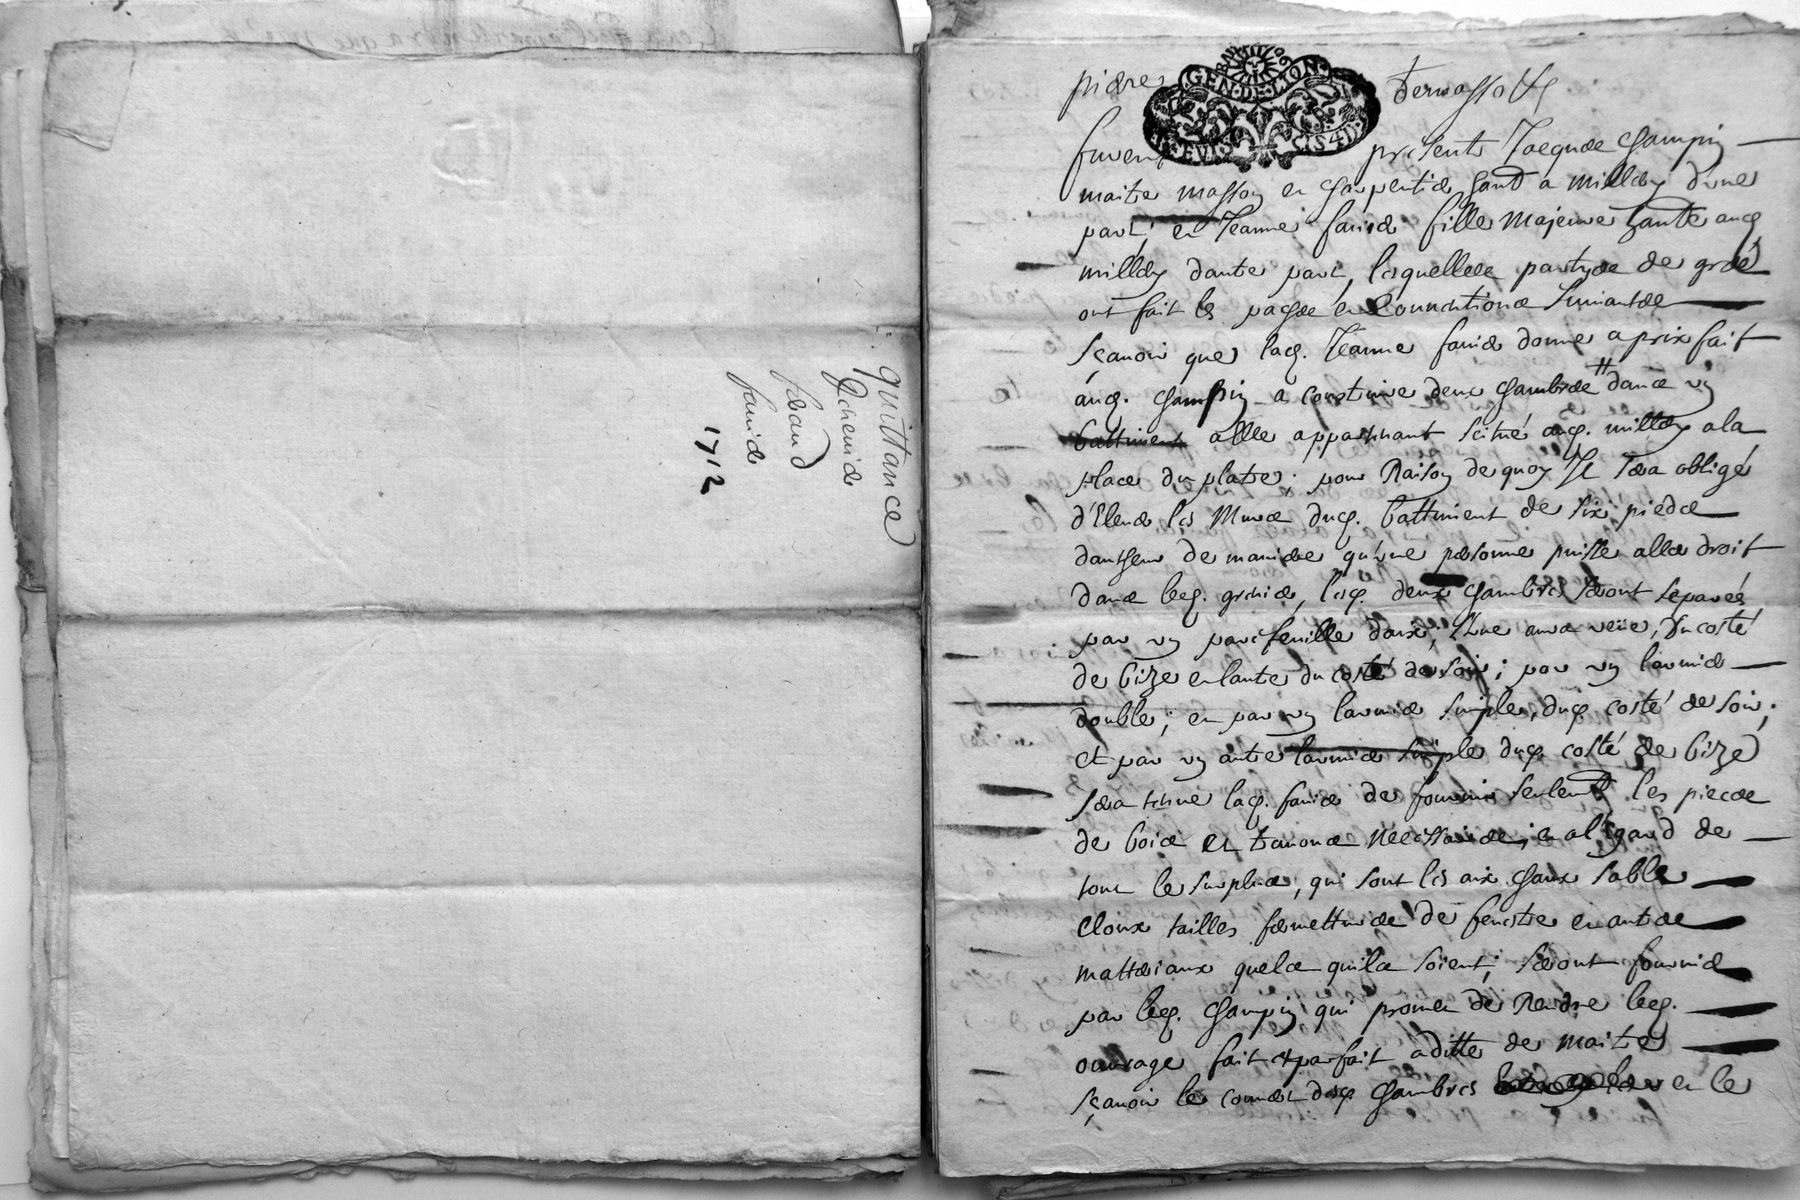 quittance
1712
GEN·DE·LION
furent presents Jacque Champin
maitre masson et charpentier habt a millery d'une
part, et Jeanne favier fille majeure habte aud
millery d'autre part, lesquelles partyes de gré
ont fait les pasches et conventions suivantes
sçavoir que lad. Jeanne favier donne a prix fait
aud. Champin a construire deux chambres dans un
battiment a elle appartenant scitué aud. millery a la
place du platre; pour Raison de quoy Il sera obligé
d'Elever les Murs dud. battiment de six pieds
d'autheur de maniere qu'une personne puisse aller droit
dans led. grenier, lesd. deux chambres seront separées
par un parefeuille d'aix; l'une aura veüe, du costé
de bize et l'autre du costé de soir; par un larmier
double; et par un larmier simple, dud costé de soir;
et par un autre larmier simple dud costé de bize
sera tenue lad. favier de fournir seulemt les pieces
de bois et travons necessaires; et a l'Egard de
tout le surplus, qui sont les aix chaux sable
cloux tailles fermettures de fenestre et autres
matteriaux quels quils soient; seront fournis
par led. Champin qui promet de Rendre led.
ouvrage fait et parfait a ditte de maitre
sçavoir le couvert desd chambres et le